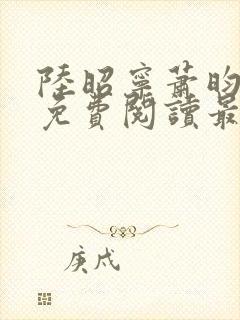 陸昭寧蕭昀
免費閱讀最
庚戌